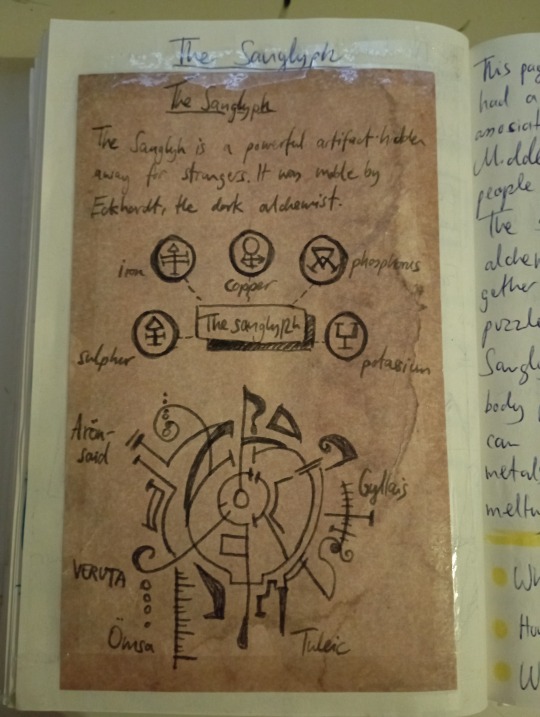 The Sanglyph
The Sanglyph
The Sanglyh is a powerful artifact hidden
away for strangers. It was mable by
Eckhardt, the dark alchemist.
iron
copper
phosphorus
The sanglyph
sulpher
potassium
Aron-
said
Gyllais
VERUTA
Ömsa
Tuleic
This pag
had a
associat
Middle
people
The s
alchem
gether
puzzle
Sangly
body
can
metals
meltin
Wh
How
W